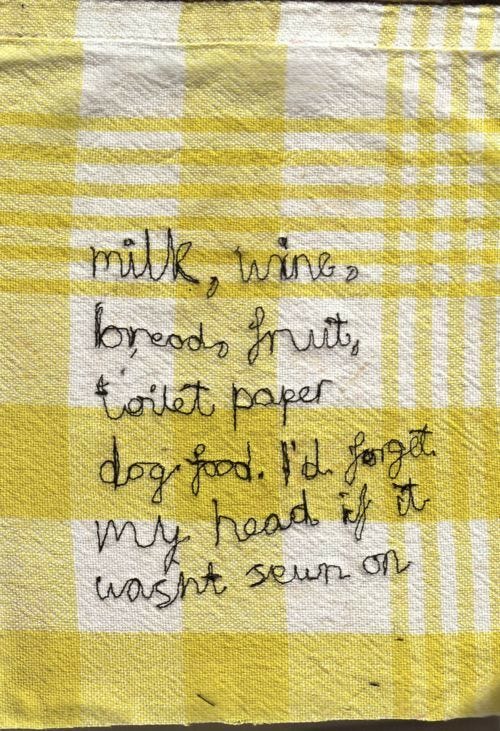 milk, wine,
bread, fruit,
toilet paper
dog food. I'd forget
my head if it
wasnt sewn on